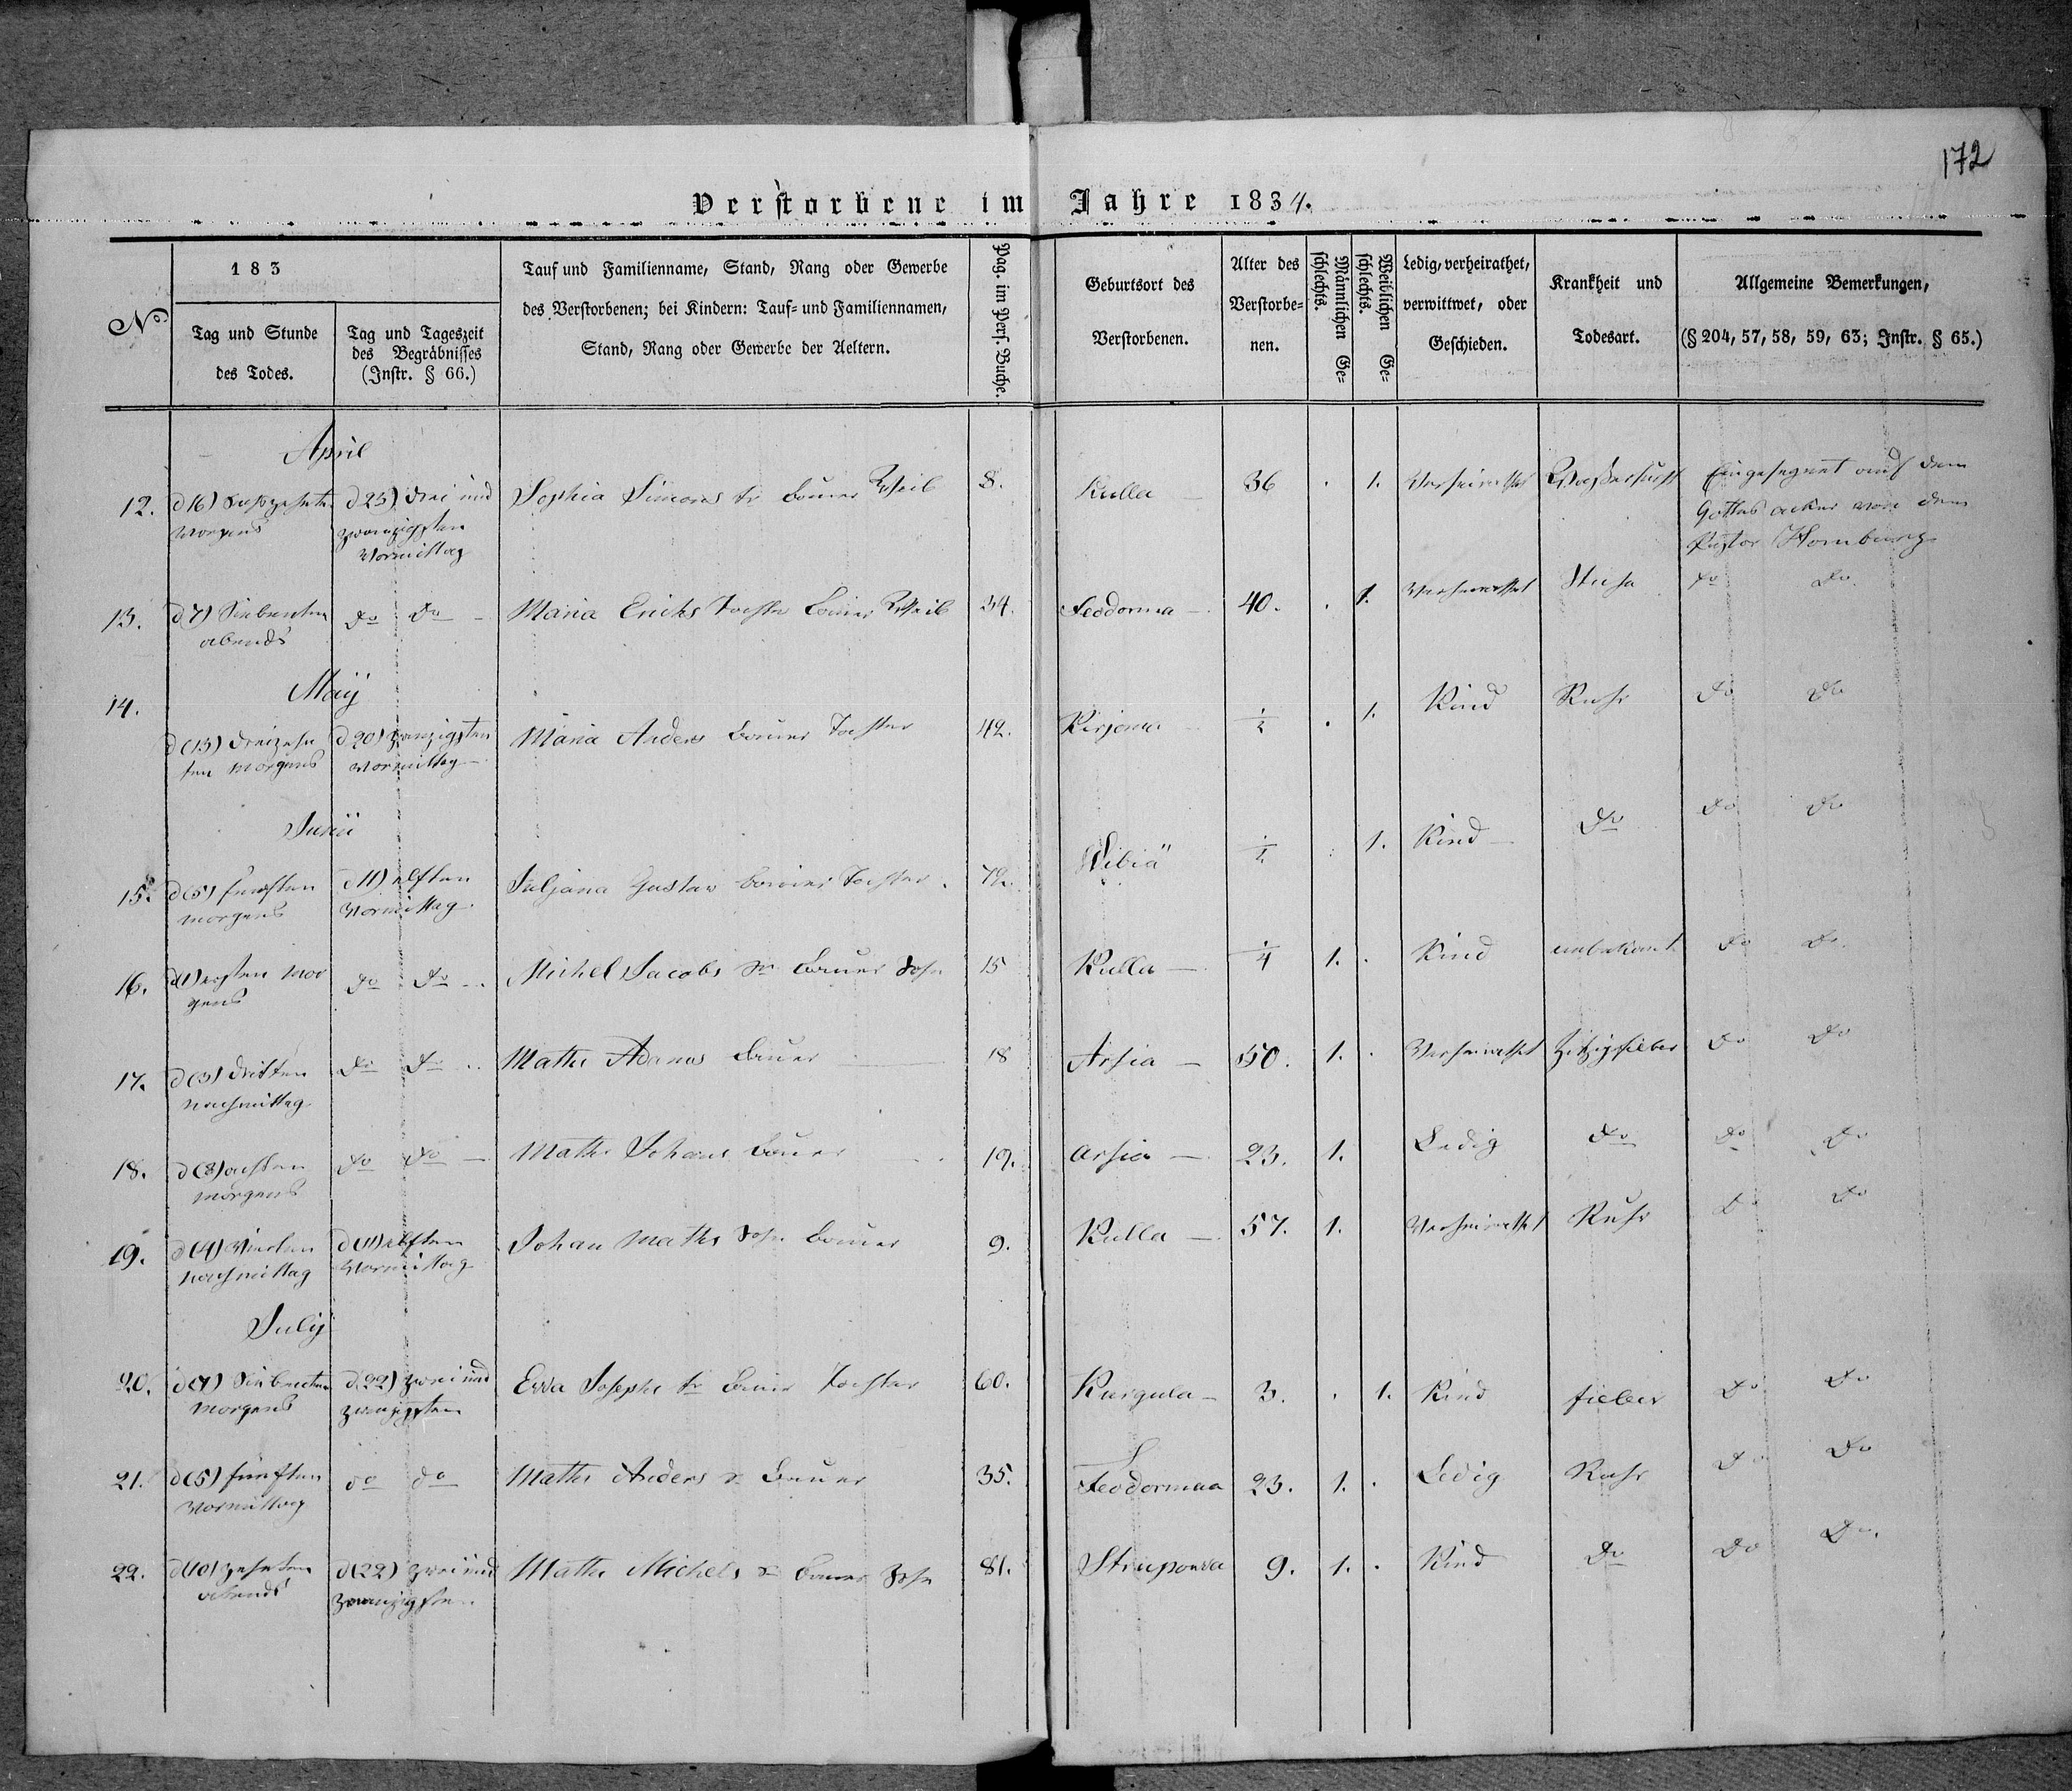 172
Verstorbene im Jahre 1834.
No
183
Tag und Stunde
des Todes.
Tag und Tageszeit
des Begräbnisses
(Instr. § 66.)
Tauf und Familienname, Stand, Rang oder Gewerbe
des Verstorbenen; bei Kindern: Tauf- und Familiennamen,
Stand, Rang oder Gewerbe der Aeltern.
Pag. im Pers. Buche.
Geburtsort des
Verstorbenen.
Alter des
Verstorbe-
nen.
Männlichen Ge-
schlechts.
Weiblichen Ge-
schlechts.
Ledig, verheirathet,
verwittwet, oder
Geschieden.
Krankheit und
Todesart.
Allgemeine Bemerkungen,
(§ 204, 57, 58, 59, 63; Instr. § 65.)
April
12. d 16) morgens
d 23) drei und
zwanzigsten
Vormittag
Sophia Simons tr Bauer Weib 8. Kulla 36 . 1. Verheirathet Wassersucht Eingesegnet auf dem
Gottes acker von dem
Pastor Homburg
13. d 7) Siebenten
abends
do do Maria Ericks Tochter Bauer Weib 34. Feodorma 40. . 1. Verheirathet do do
May
14. d (13) dreizehn
ten morgens
d 20) zwanzigsten
vormittag
Maria Anders Bauer Tochter 42. 1/2 . 1. Kind Ruhr do do
Junii
15. d (5) fünften
morgens
d 11) elften
Vormittag
Juljana Gustav Bauer Tochter. 72. Wibiä 1/2 . 1. Kind do do do
16. d 1) ersten mor
gens
do do Michel Jacobs sn Bauer Sohn 15 Kulla 1/4 1. . Kind unbekant do do
17. d (3) dritten
nachmittag
do do Maths Adams Bauer 18 Arsia 50. 1. . Verheirathet hitzigfieber do do
18. d (8) achten
morgens
do do Maths Johans Bauer 19. Arsia 23. 1. Ledig do do do
19. d (4) Vierten
nachmittag
d (11) elften
Vormittag
Johan Maths Sohn Bauer 9. Kulla 57. 1. Verheirathet Ruhr do do
July
20. d (7) Siebenten
morgens
d 22) zwei und
zwanzigsten
Ewa Josephs tr Bauer Tochter 60. Kurgula 3. . 1. Kind fieber do do
21. d (5) fünften
Vormittag
do do Maths Anders s Bauer 35. Feodormaa 23. 1. . Ledig Ruhr do do
22. d (10) zehnten
abends
d (22) zwei und
zwanzigsten
Maths Michels s Bauer Sohn 81. Struppowa 9. 1. . Kind do do do.